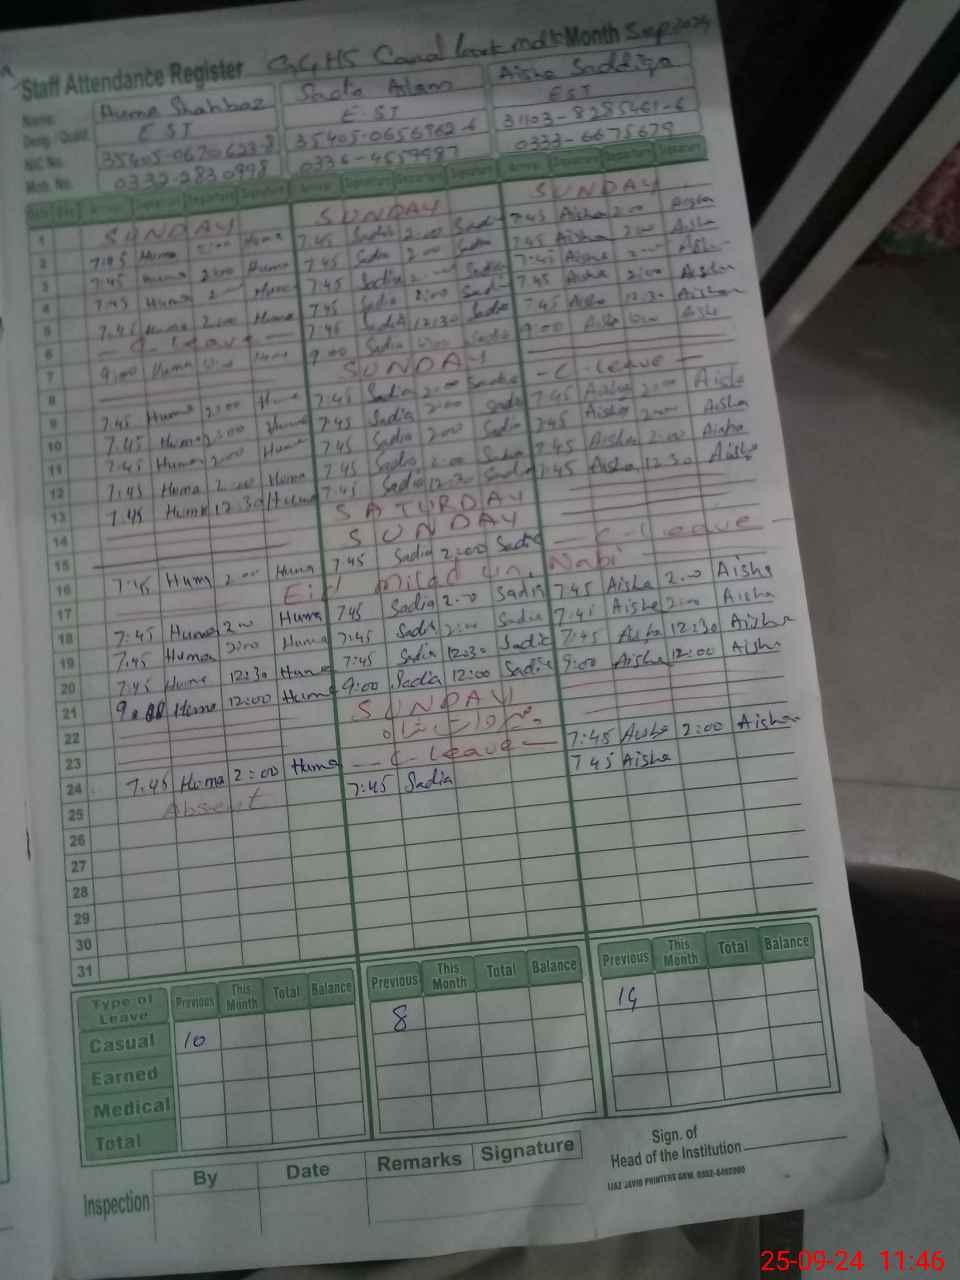 Staff Attendance Register GGHS Canal Month Sep 2024
Name Huma Shahbaz Sadia Aslam Aisha Saddiqa
Desig / Qualif. EST EST EST
NIC No. 35405-0656762-6 31103-8285461-6
Mob. No. 0332-2830998 0336-4559987 0333-6675679
1 SUNDAY SUNDAY SUNDAY
2 7:45 Huma 2:00 Huma 7:45 Sadia 2:00 Sadia 7:45 Aisha 2:00 Aisha
3 7:45 Huma 2:00 Huma 7:45 Sadia 2:00 Sadia 7:45 Aisha 2:00 Aisha
4 7:45 Huma Huma 7:45 Sadia Sadia 7:45 Aisha Aisha
5 7:45 Huma 2:00 Huma 7:45 Sadia 2:00 Sadia 7:45 Aisha 2:00 Aisha
6 - C-leave - 7:45 Sadia 12:30 Sadia 7:45 Aisha 12:30 Aisha
7 9:00 Huma 9:00 Sadia Sadia 9:00 Aisha
8 SUNDAY
9 7:45 Huma 2:00 Huma 7:45 Sadia 2:00 Sadia - C-leave -
10 7:45 Huma 2:00 Huma 7:45 Sadia 2:00 Sadia 7:45 Aisha 2:00 Aisha
11 7:45 Huma 2:00 Huma 7:45 Sadia 2:00 Sadia 7:45 Aisha 2:00 Aisha
12 7:45 Huma 2:00 Huma 7:45 Sadia 2:00 Sadia 7:45 Aisha 2:00 Aisha
13 7:45 Huma 12:30 Huma 7:45 Sadia 12:30 Sadia 7:45 Aisha 12:30 Aisha
14 SATURDAY
15 SUNDAY
16 7:45 Huma 2:00 Huma 7:45 Sadia 2:00 Sadia - C-Leave -
17 Eid Milad un Nabi
18 7:45 Huma 2:00 Huma 7:45 Sadia 2:00 Sadia 7:45 Aisha 2:00 Aisha
19 7:45 Huma 2:00 Huma 7:45 Sadia 2:00 Sadia 7:45 Aisha 2:00 Aisha
20 7:45 Huma 12:30 Huma 7:45 Sadia 12:30 Sadia 7:45 Aisha 12:30 Aisha
21 Huma 12:00 Huma 9:00 Sadia 12:00 Sadia 9:00 Aisha 12:00 Aisha
22 SUNDAY
23
24 7:45 Huma 2:00 Huma - C-Leave - 7:45 Aisha 2:00 Aisha
25 Absent 7:45 Sadia 7:45 Aisha
26
27
28
29
30
31
Type of Leave Previous This Month Total Balance Previous This Month Total Balance Previous This Month Total Balance
Casual 10 8 14
Earned
Medical
Total
Inspection By Date Remarks Signature
Sign. of
Head of the Institution
IJAZ JAVID PRINTERS GRW.
25-09-24 11:46